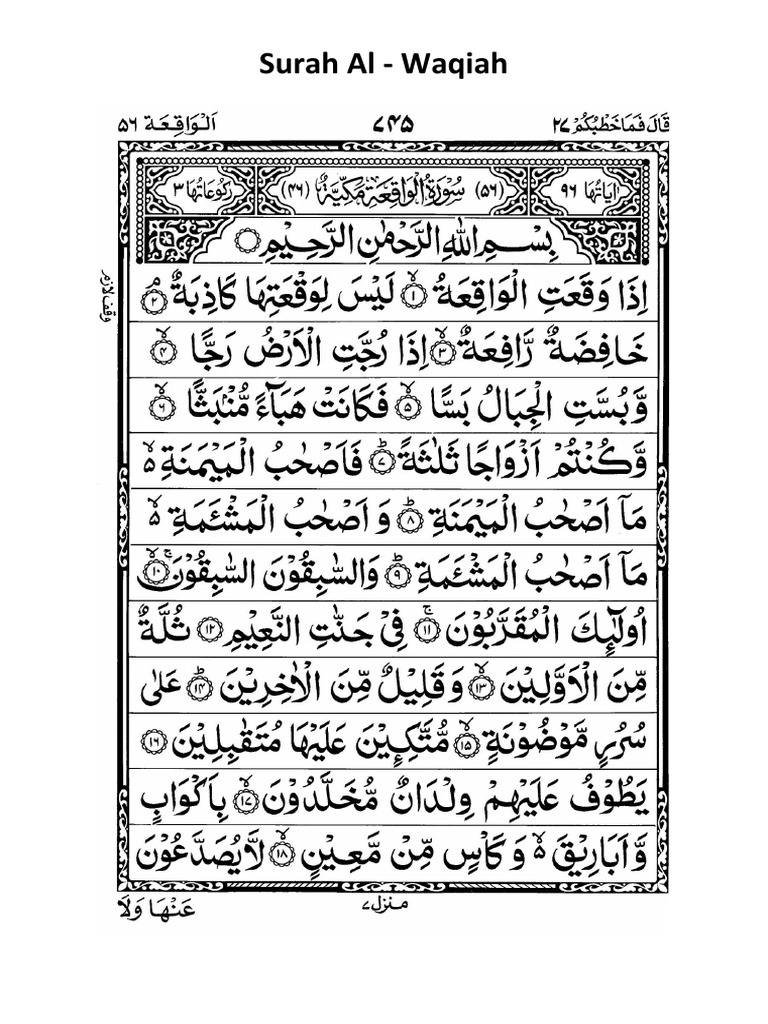 Surah Al - Waqiah
قَالَ فَمَا خَطْبُكُمْ ۲۷ ۷۴۵ اَلْوَاقِعَة ۵۶
اٰيَاتُهَا ۹۶ (۵۶) سُوْرَةُ الْوَاقِعَةِ مَكِّيَّةٌ (۴۶) رُكُوْعَاتُهَا ۳
بِسْمِ اللّٰهِ الرَّحْمٰنِ الرَّحِيْمِ
اِذَا وَقَعَتِ الْوَاقِعَةُ ۙ﴿۱﴾ لَيْسَ لِوَقْعَتِهَا كَاذِبَةٌ ۘ﴿۲﴾
وقف لازم
خَافِضَةٌ رَّافِعَةٌ ۙ﴿۳﴾ اِذَا رُجَّتِ الْاَرْضُ رَجًّا ۙ﴿۴﴾
وَّبُسَّتِ الْجِبَالُ بَسًّا ۙ﴿۵﴾ فَكَانَتْ هَبَآءً مُّنْۢبَثًّا ۙ﴿۶﴾
وَّكُنْتُمْ اَزْوَاجًا ثَلٰثَةً ؕ﴿۷﴾ فَاَصْحٰبُ الْمَيْمَنَةِ ۙ۵
مَاۤ اَصْحٰبُ الْمَيْمَنَةِ ؕ﴿۸﴾ وَ اَصْحٰبُ الْمَشْـَٔمَةِ ۙ۵
مَاۤ اَصْحٰبُ الْمَشْـَٔمَةِ ؕ﴿۹﴾ وَالسّٰبِقُوْنَ السّٰبِقُوْنَ ۚۙ﴿۱۰﴾
اُولٰٓئِكَ الْمُقَرَّبُوْنَ ۚ﴿۱۱﴾ فِيْ جَنّٰتِ النَّعِيْمِ ﴿۱۲﴾ ثُلَّةٌ
مِّنَ الْاَوَّلِيْنَ ۙ﴿۱۳﴾ وَ قَلِيْلٌ مِّنَ الْاٰخِرِيْنَ ؕ﴿۱۴﴾ عَلٰى
سُرُرٍ مَّوْضُوْنَةٍ ۙ﴿۱۵﴾ مُّتَّكِـِٕيْنَ عَلَيْهَا مُتَقٰبِلِيْنَ ﴿۱۶﴾
يَطُوْفُ عَلَيْهِمْ وِلْدَانٌ مُّخَلَّدُوْنَ ۙ﴿۱۷﴾ بِاَكْوَابٍ
وَّ اَبَارِيْقَ ۙ۵ وَ كَاْسٍ مِّنْ مَّعِيْنٍ ۙ﴿۱۸﴾ لَّا يُصَدَّعُوْنَ
منزل ۷
عَنْهَا وَلَا